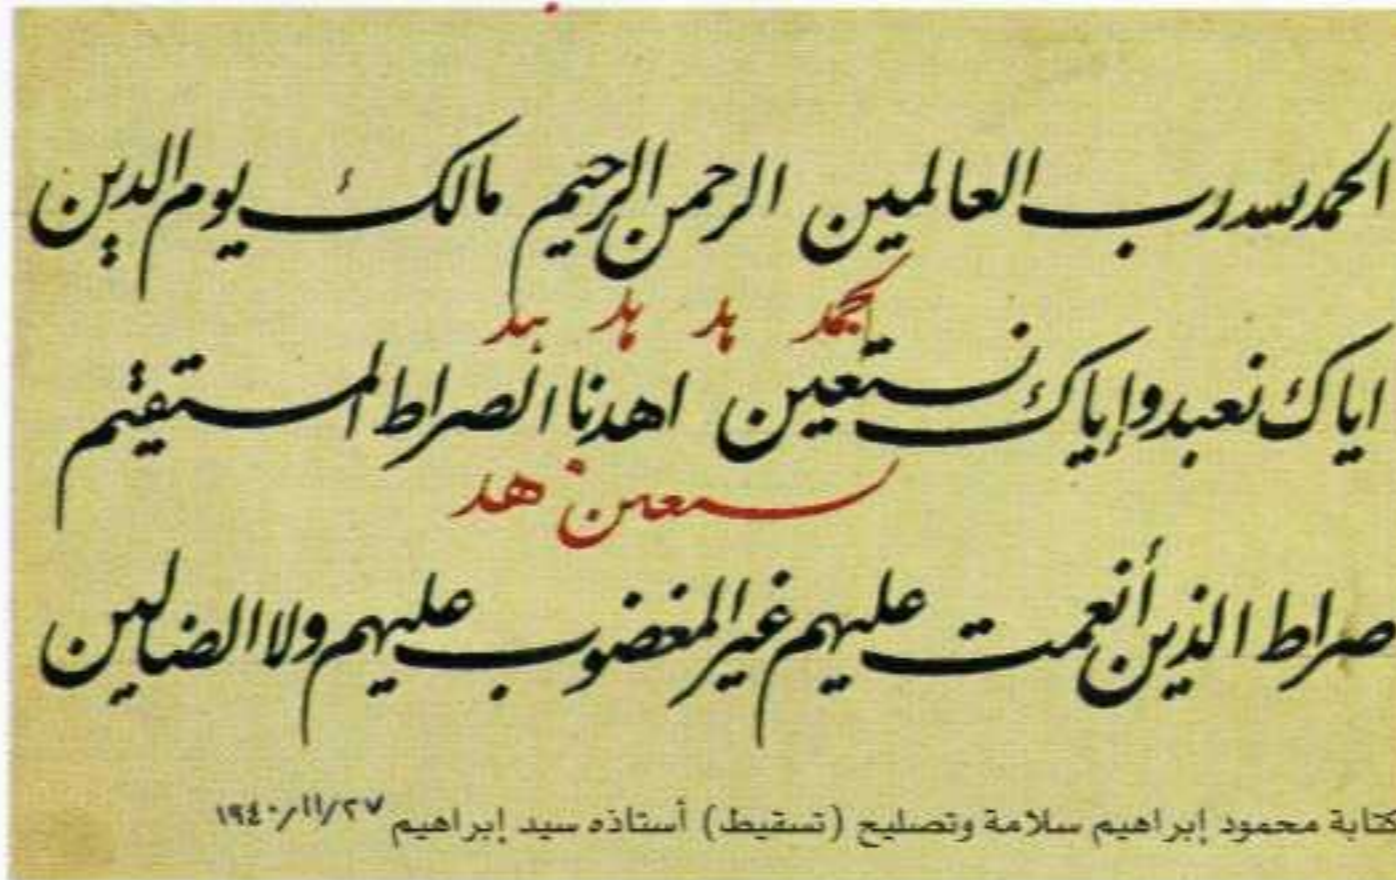 الحمد لله رب العالمين الرحمن الرحيم مالك يوم الدين
نحمد هد هد هد
اياك نعبد وإياك نستعين اهدنا الصراط المستقيم
ستعين هد
صراط الذين أنعمت عليهم غير المغضوب عليهم ولا الضالين
كتابة محمود إبراهيم سلامة وتصليح (تسقيط) أستاذه سيد إبراهيم ١٩٤٠/١١/٢٧